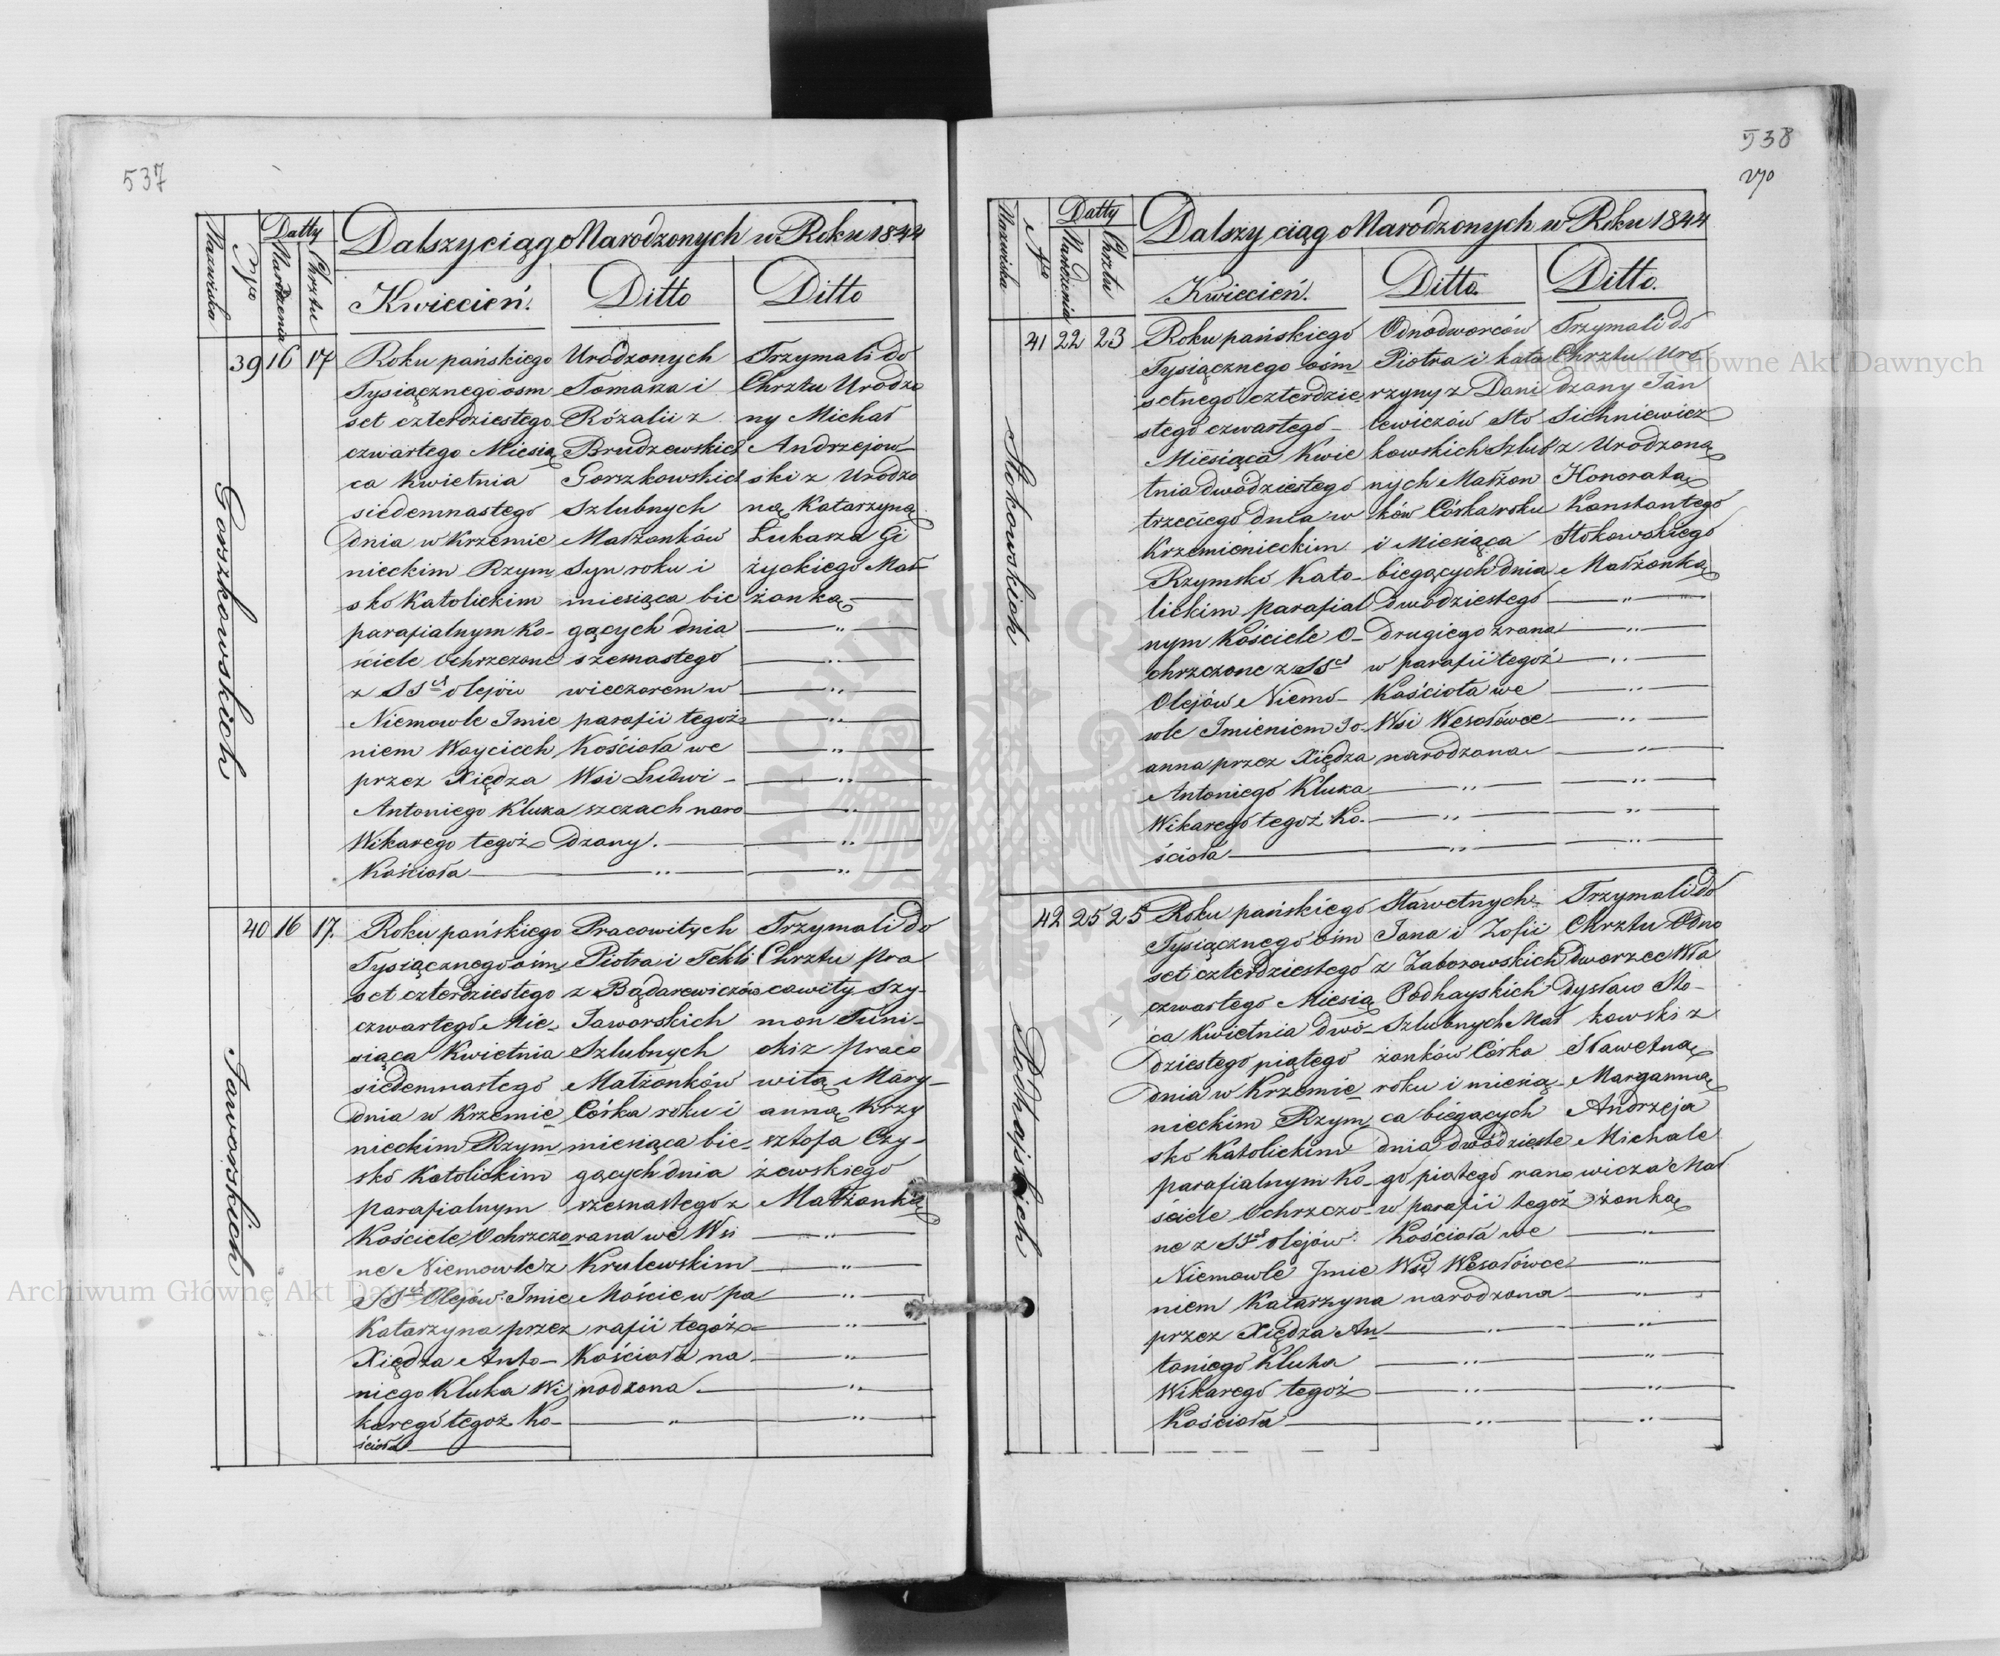 537
Dalszy ciąg o Narodzonych w Roku 1844
Nazwiska
Nro
Datty
Narodzenia
Chrztu
Kwiecień.
Ditto
Ditto
39
16
17
Gorszkowskich
Roku pańskiego
Tysiącznego osm
set czterdziestego
czwartego Miesią
ca Kwietnia
siedemnastego
dnia w Krzemie
nieckim Rzym
sko Katolickim
parafialnym Ko-
ściele Ochrzczone
z SSch olejów
Niemowle Imie
niem Woyciech
przez Xiędza
Antoniego Kluka
Wikarego tegoż
Kościoła
Urodzonych
Tomasza i
Rózalii z
Brudzewskich
Gorszkowskich
Szlubnych
Małżonków
Syn roku i
miesiąca bie
gących dnia
szesnastego
wieczorem w
parafii tegoż
Kościoła we
Wsi Ludwi-
szczach naro
dzany.
Trzymali do
Chrztu Urodzo
ny Michał
Andrzejow-
ski z Urodzo
ną Katarzyną
Łukasza Gi
życkiego Mał-
żonką
40
16
17.
Jaworskich
Roku pańskiego
Tysiącznego ośm
set czterdziestego
czwartego Mie-
siąca Kwietnia
siedemnastego
dnia w Krzemie
nieckim Rzym
sko Katolickim
parafialnym
Kościele Ochrzczo
ne Niemowle z
SSch Olejów Imie
Katarzyna przez
Xiędza Anto-
niego Kluka Wi
karego tegoż Ko-
ścioła
Pracowitych
Piotra i Tekli
z Bądarewiczów
Jaworskich
Szlubnych
Małżonków
Córka roku i
miesiąca bie-
gących dnia
szesnastego z
rana we Wsi
Krulewskim
Moście w pa
rafii tegoż
Kościoła na
rodzona.
Trzymali do
Chrztu Pra
cowity Szy-
mon Juni-
ski z Praco
witą Mary-
anną Krzy
sztofa Czy-
żewskiego
Małżonką
538
Dalszy ciąg o Narodzonych w Roku 1844
Nazwiska
Nro
Datty
Narodzenia
Chrztu
Kwiecień.
Ditto.
Ditto.
41
22
23
Stokowskich
Roku pańskiego
Tysiącznego ośm
setnego czterdzie
stego czwartego
Miesiąca Kwie
tnia dwódziestego
trzeciego dnia w
Krzemienieckim
Rzymsko Kato-
lickim parafial
nym Kościele O-
chrzczone z SSch
Olejów Niemo-
wle Imieniem Jo-
anna przez Xiędza
Antoniego Kluka
Wikarego tegoż Ko-
ścioła
Odnodworców
Piotra i Kata
rzyny z Dani
lewiczów Sto
kowskich Szlub
nych Małżon
ków Córka roku
i Miesiąca
biegących dnia
dwódziestego
drugiego z rana
w parafii tegoż
Kościoła we
Wsi Wesołówce
narodzona
Trzymali do
Chrztu Uro
dzony Jan
Sichniewicz
z Urodzoną
Honoratą
Konstantego
Stokowskiego
Małżonką
42
25
25
Podhajskich
Roku pańskiego
Tysiącznego ośm
set czterdziestego
czwartego Miesią
ca Kwietnia dwó-
dziestego piątego
dnia w Krzemie
nieckim Rzym
sko Katolickim
parafialnym Ko-
ściele Ochrzczo-
ne z SSch olejów
Niemowle Imie
niem Katarzyna
przez Xiędza An
toniego Kluka
Wikarego tegoż
Kościoła
Sławetnych
Jana i Zofii
z Zaborowskich
Podhayskich
Szlubnych Mał
żonków Córka
roku i miesią-
ca biegących
dnia dwódzieste
go piątego rano
w parafii tegoż
Kościoła we
Wsi Wesołówce
narodzona
Trzymali do
Chrztu Odno
dworzec Wła
dysław Sto-
kowski z
Sławetną
Maryanną
Andrzeja
Michale
wicza Mał
żonką
Archiwum Główne Akt Dawnych
Archiwum Główne Akt Dawnych